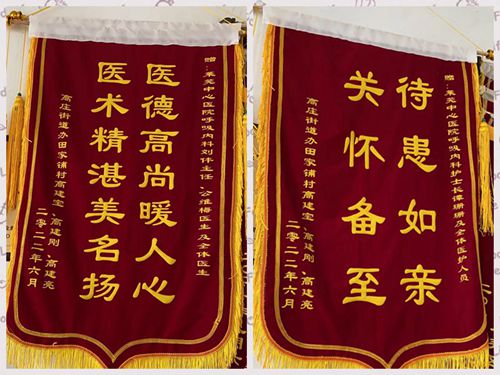 赠：莱芜中心医院呼吸内科刘伟主任、公维梅医生及全体医生
医德高尚暖人心
医术精湛美名扬
高庄街道办田家铺村高建宝、高建刚、高建亮
二零二二年六月
赠：莱芜中心医院呼吸内科护士长谭珊珊及全体医护人员
待患如亲
关怀备至
高庄街道办田家铺村高建宝、高建刚、高建亮
二零二二年六月